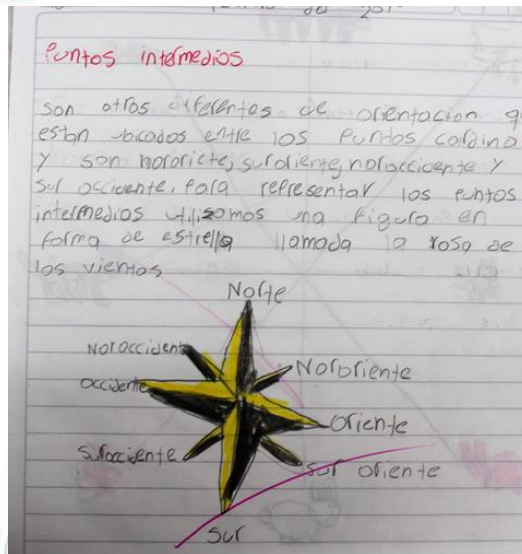 Puntos intermedios
son otros diferentes de orientacion q
estan ubicados entre los Puntos cardina
Y son nororiete, suroliente, noroccidente Y
sur occidente, Para representar los puntos
intermedios utilizamos una figura en
forma de estrella llamada la rosa de
los vientos
Norte
Noroccidente
Nororiente
occidente
Oriente
Suroccidente
Sur oriente
Sur